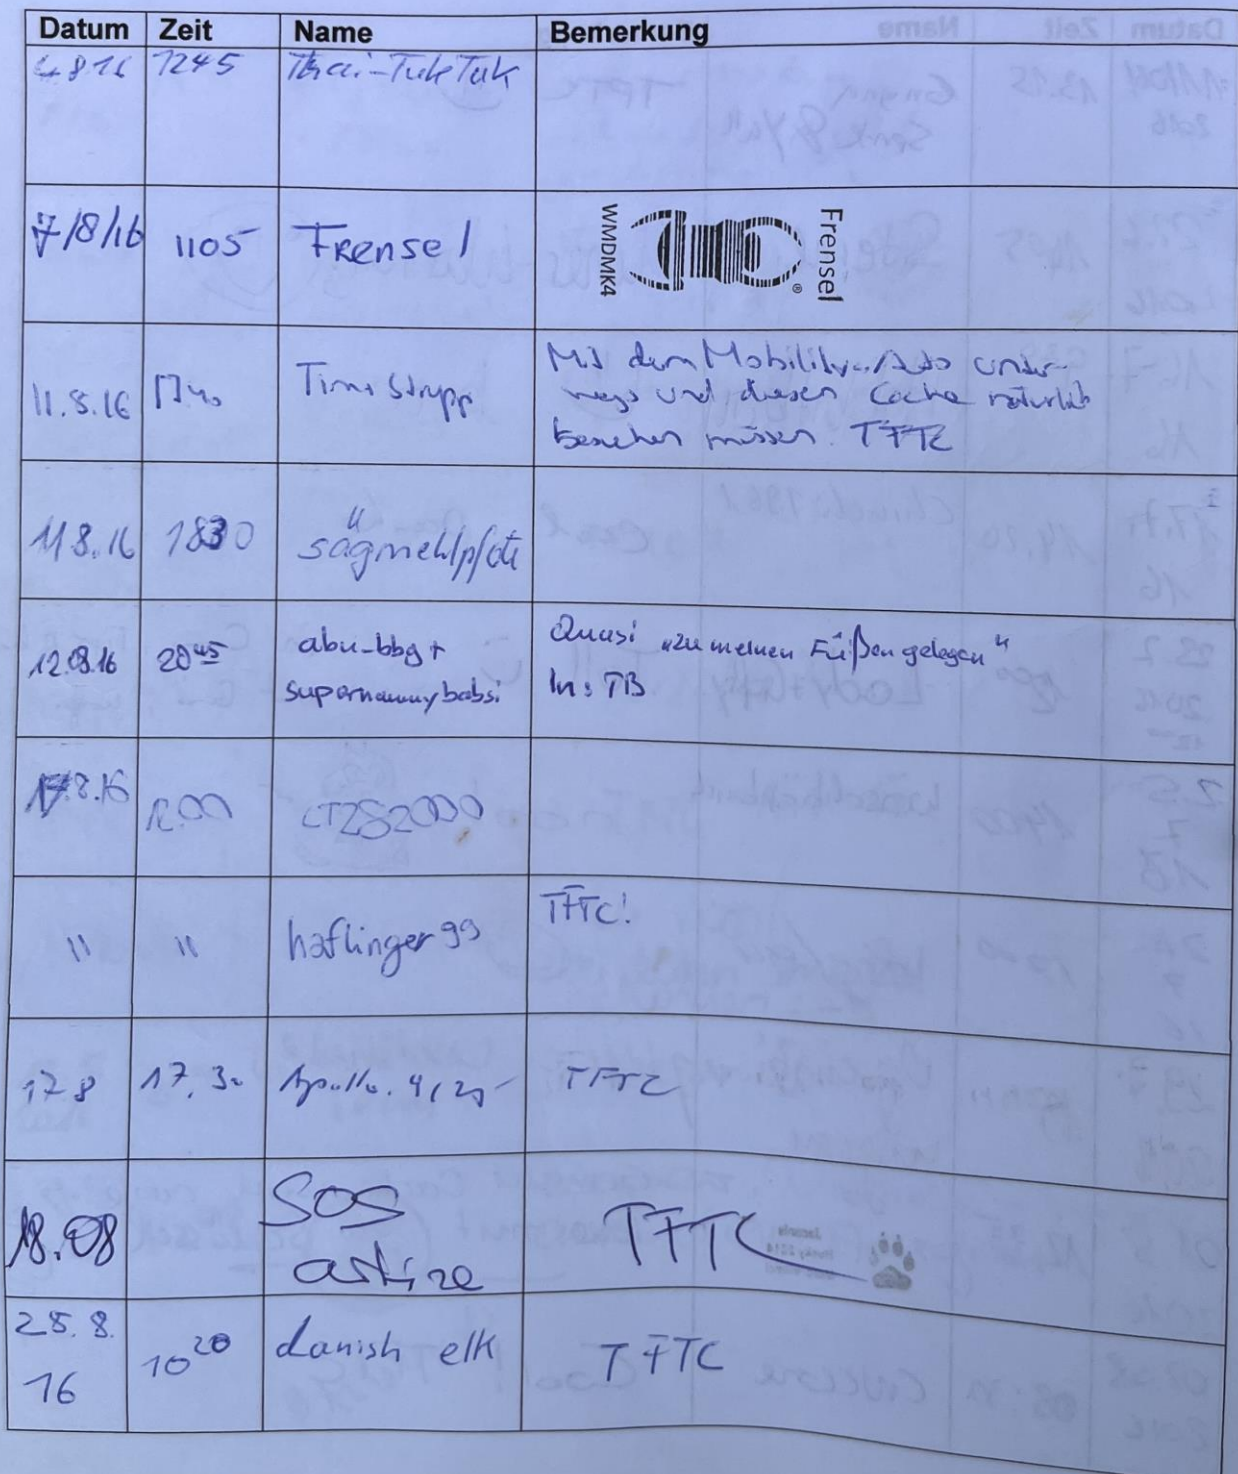 Datum Zeit Name Bemerkung
4 8 16 1245 Thai-TukTuk
7/8/16 1105 Frensel WMDMK4 Frensel
11.8.16 1740 Timo Strupp Mit dem Mobility-Auto unter-
wegs und diesen Cache natürlich
besuchen müssen. TFTC
11 8.16 1830 sägmehlpfote
12.08.16 20 45 abu-bbg + Quasi „zu meinen Füßen gelegen“
supernannybabsi In: TB
17.8.16 CTZS2000
" " haflinger99 TFTC!
17 8 17,30 TFTC
18.08 SOS TFTC
28.8. danish elk TFTC
16 10 20